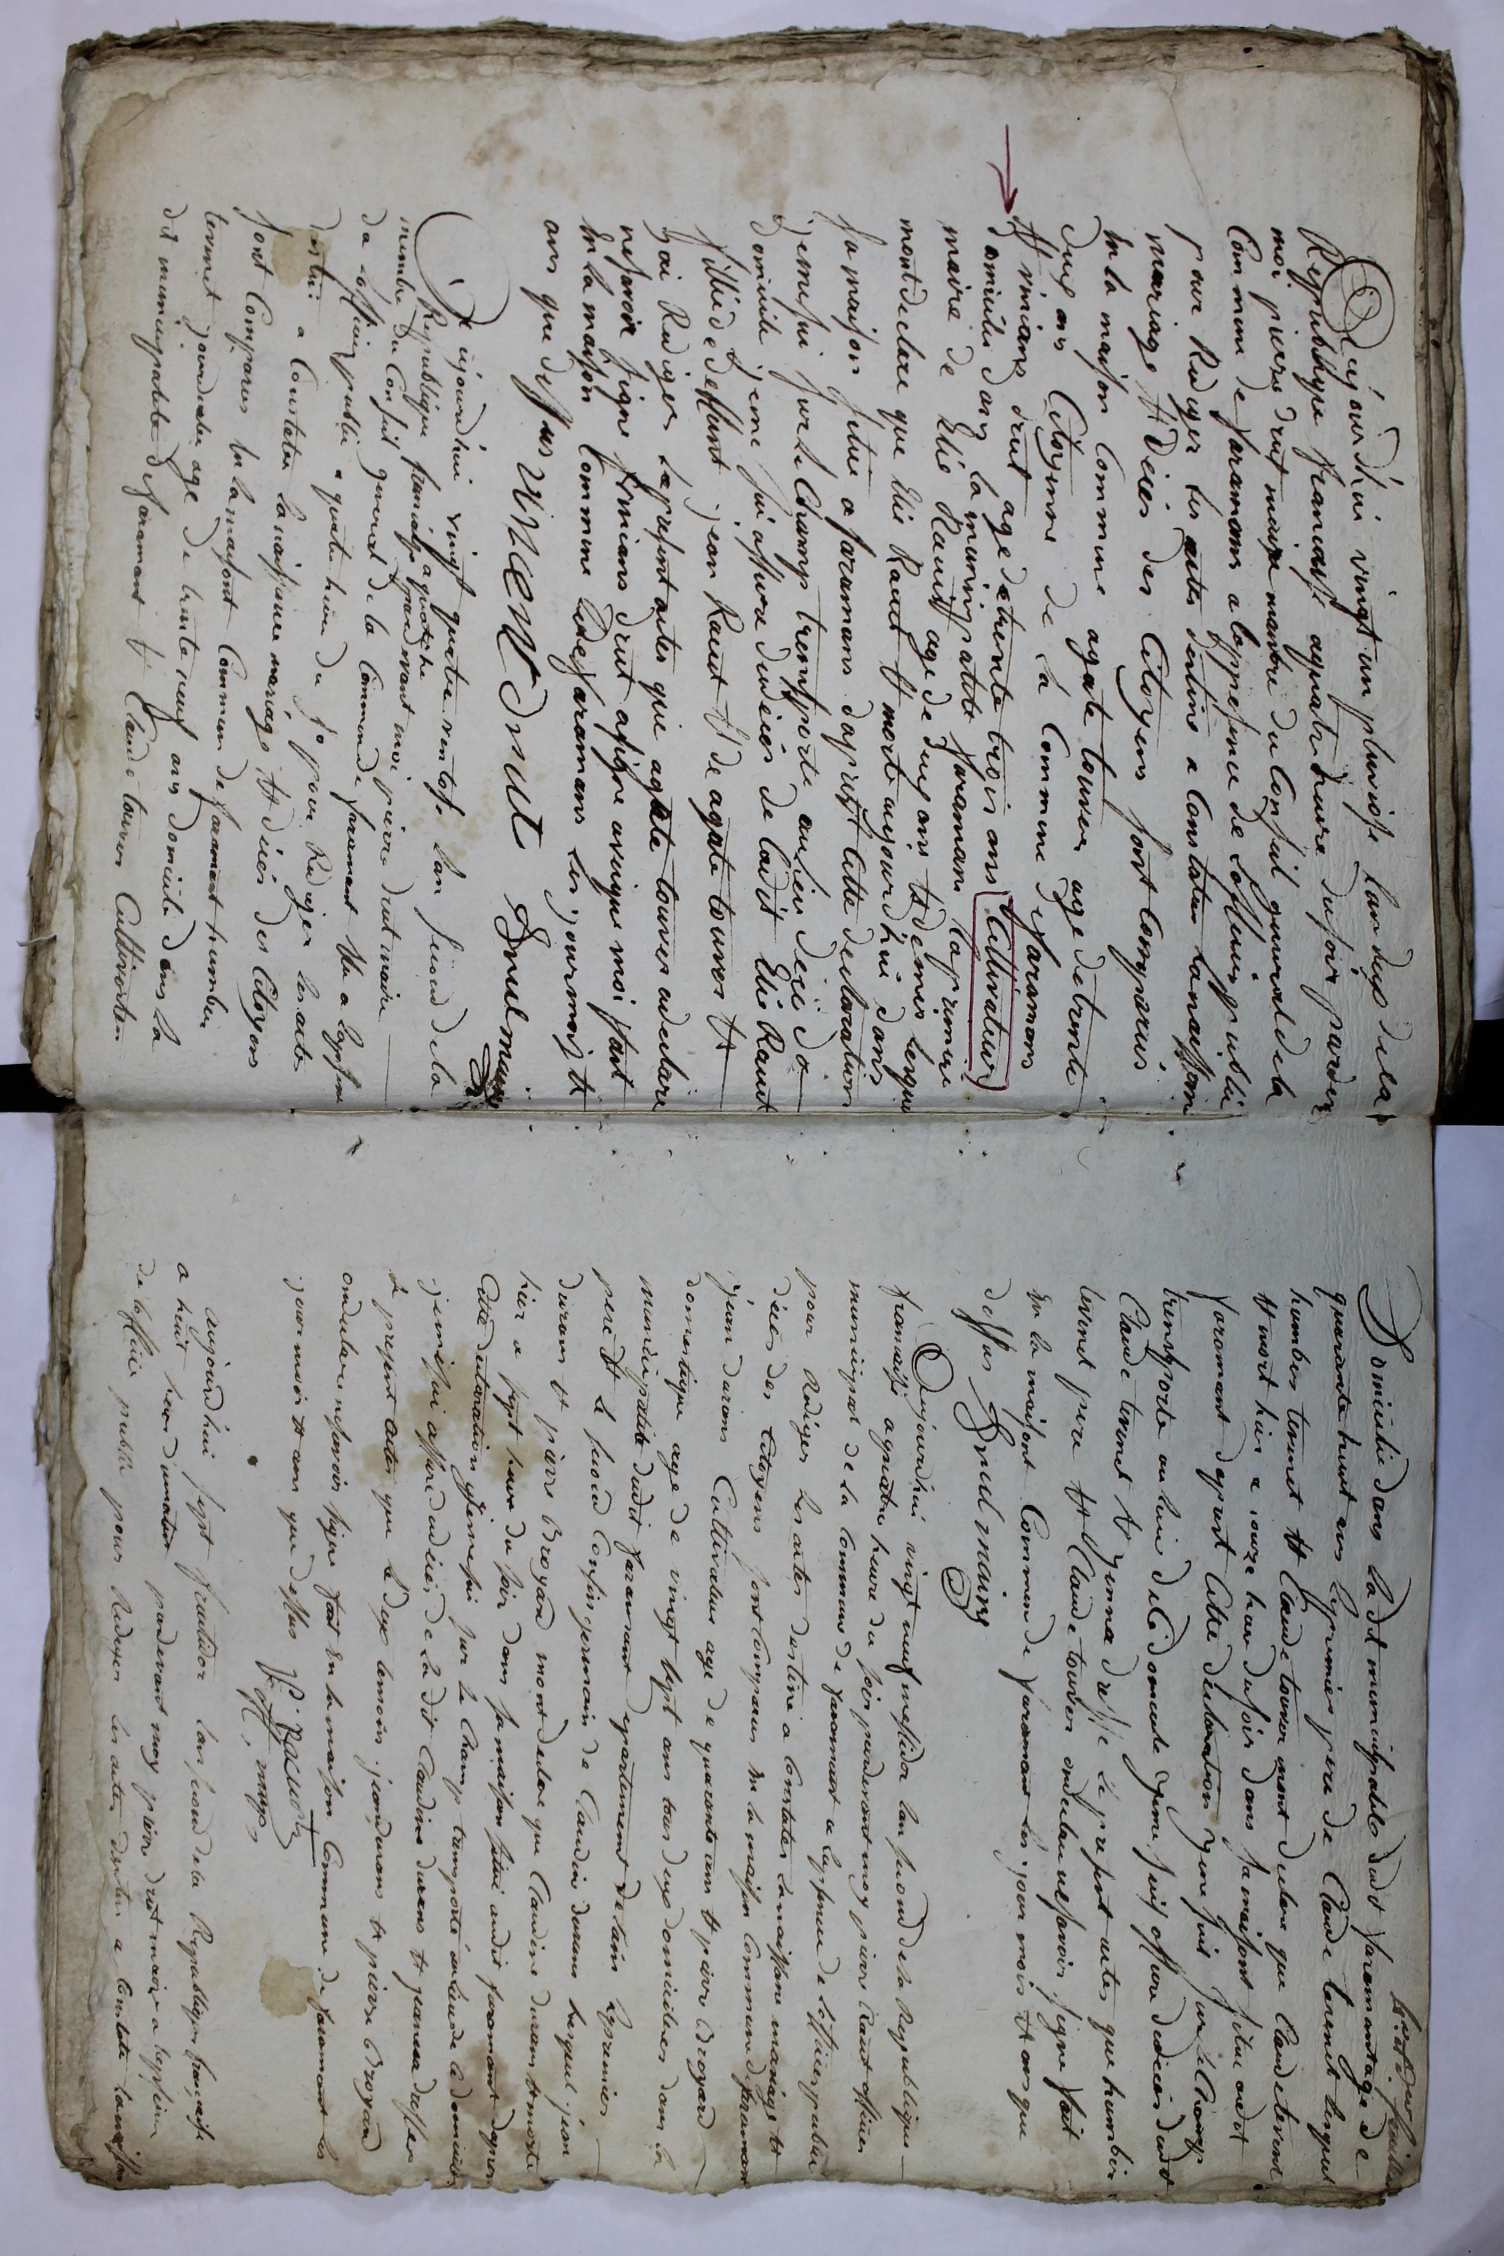 Dujourd'hui vingt un pluviose lan deux dela
Republique francaisse a quatre heure du soir pardev
moi pierre drut maire membre du Conseil general de la
Commune de faramans a loppesence de lofficier public
pour Rediger les actes destine a Constater la naissance
mariage Et Deces des Citoyens sont Comparus
En la maison Commune agate touvier age de trente
deux ans Citoyenne de la Commune de faramans
Et vinians drut age de trente trois ans Cultivateur
Domicilies dans la municipalite faramans la premiere
maire de Elie Raut age de deux ans Et demis lesque
mont declare que Elie Raut Et morte aujourdhui dans
sa maison situe a faramans dapres Cette declaration
je me sui sur le Champ transporte au lieu de ce do
domicile je me sui assure du deces de ladit Elie Raut
fillie de deffunt jean Raut Et de agate touvier Et
jai Rediger le present actes que agate touvier a declare
ne savoir signe vinians drut a signe avecque moi fait
En la maison Commune de faramans les jour mois Et
ans que dessus vincent drut Drut maire
Dujourd'hui vingt quatre ventose lan second de la
Republique francaise a quatre heure pardevant moi pierre drut maire
membre du Conseil general de la Commune de faramant Elu a loppesence
de lofficier public a quatre heure du soir pour Rediger les acte
destine a Constater la naissance mariage Et deces des Citoyens
sont Comparus En la maisont Commune de faramant humber
tevenet journalier age de trente neuf ans domicilie dans la
dit municipalite de faramant Et Claude touvier Cultivateur
Domicilie dans la dit municipalite dudit faramant age de
quarante huit ans le premier pere de Claude tevenet lesquel
humber tevenet Et Claude touvier mont declare que Claude tevenet
Et mort hier a onze heure du soir dans sa maisont situe audit
faramant dapres Cette declaration je me suis sur le Champ
transporte au lieu de Ce domicile je me suis assure du deces dudit
Claude tevenet Et jai dresse le present actes que humber
tevenet pere Et Claude touvier ont declare ne savoir signe fait
En la maisont Commune de faramant les jour mois Et ans que
dessus Drut maire
Dujourdhui vingt neuf messidor lan second de la Republique
francaisse a quatre heure du soir pardevant moy pierre Raut officier
municipal de la Commune de faramant a loppesence de lofficier public
pour Rediger les actes destine a Constater la naissance mariage Et
deces des Citoyens sont Comparus En la maison Commune de faramant
jean durons Cultivateur age de quarante ans Et pierre Broyard
domestique age de vingt sept ans tous deux domicilies dans la
municipalite dudit faramant departement de lain le premier
pere Et le second Cousin germain de Claudine durons lesquel jean
durons Et pierre Broyard mont declare que Claudine durons Et morte
hier a sept heure du soir dans sa maison situe audit faramant dapres
Cette declaration je me sui sur le Champ transporte au lieu de Ce domicile
je me sui assure du deces de la dit Claudine durons Et jeanne
Le present actes que le deux temoin jean durons Et pierre Broyard
ont declare ne savoir signe fait En la maison Commune de faramant les
jour mois Et ans que dessus P. Raut
off. mup
aujourdhui sept fructidor lan second de la Republique francaise
a huit heur du matin pardevant moy pierre drut maire a loppesence
de lofficier public pour Rediger les actes destine a Constater la naissance